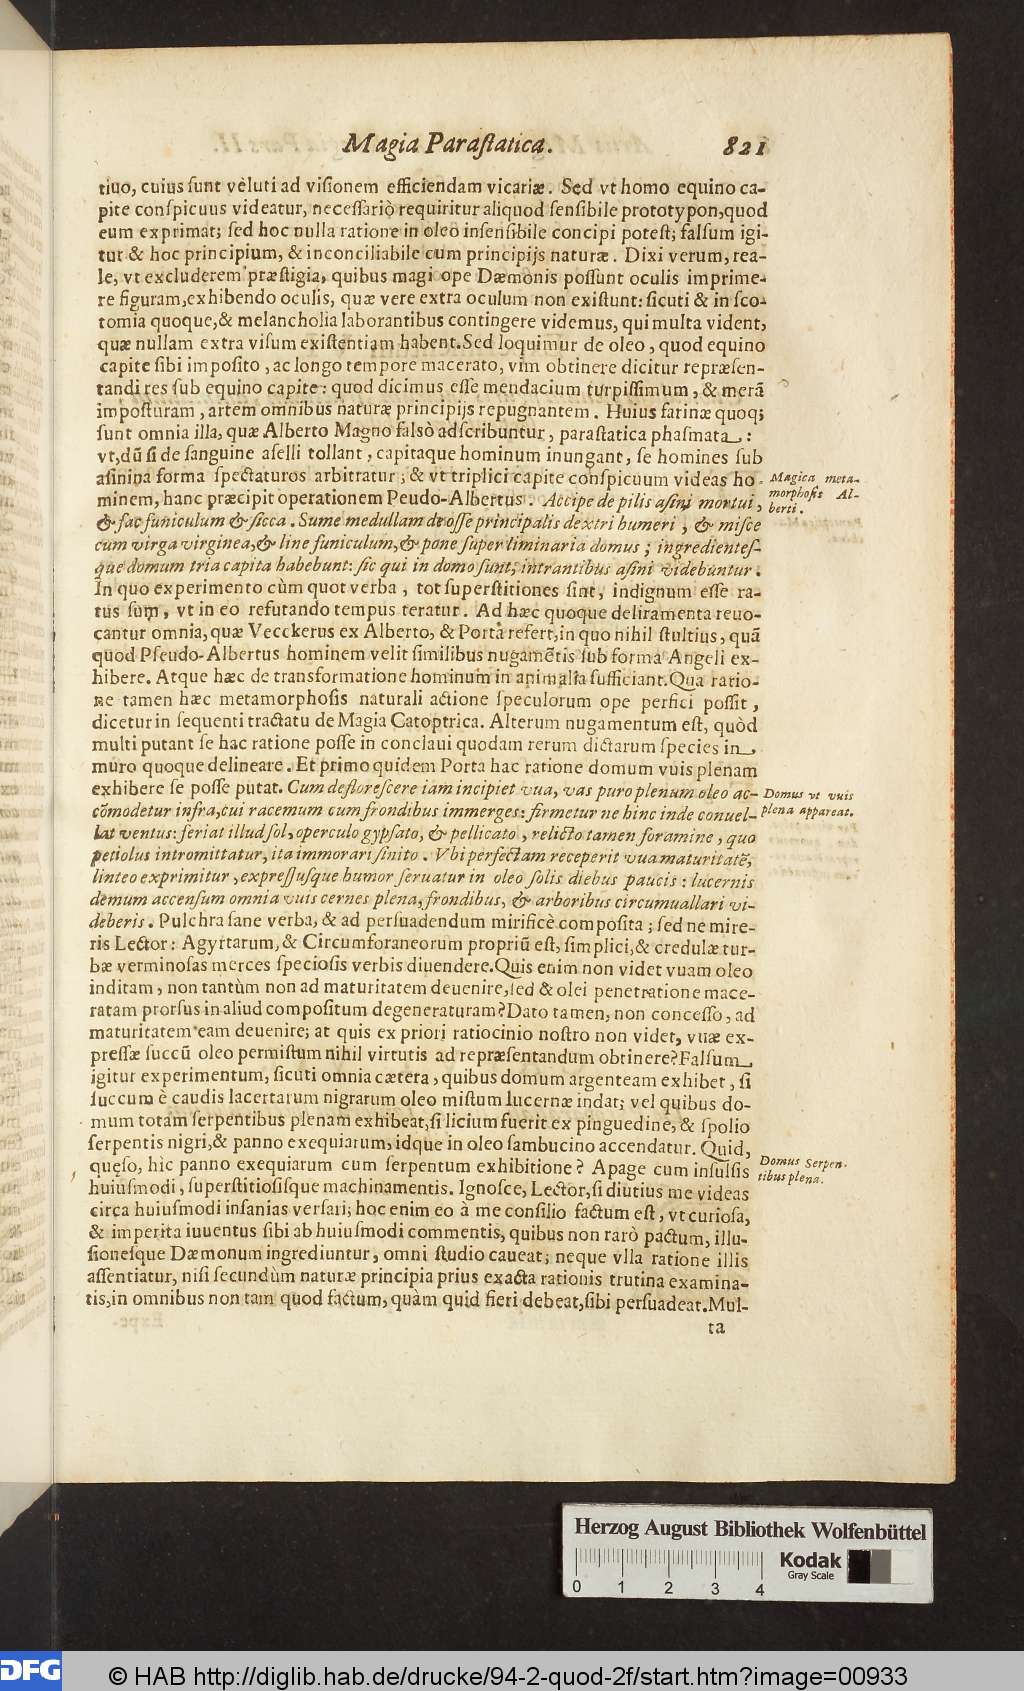 Magia Paraſtatica. 821
tiuo, cuius ſunt vèluti ad viſionem efficiendam vicariæ. Sed vt homo equino ca-
pite conſpicuus videatur, neceſſariò requiritur aliquod ſenſibile prototypon, quod
eum exprimat; ſed hoc nulla ratione in oleo inſenſibile concipi poteſt; falſum igi-
tur & hoc principium, & inconciliabile cum principijs naturæ. Dixi verum, rea-
le, vt excluderem præſtigia, quibus magi ope Dæmonis poſſunt oculis imprime-
re figuram, exhibendo oculis, quæ vere extra oculum non exiſtunt: ſicuti & in ſco-
tomia quoque, & melancholia laborantibus contingere videmus, qui multa vident,
quæ nullam extra viſum exiſtentiam habent. Sed loquimur de oleo, quod equino
capite ſibi impoſito, ac longo tempore macerato, vim obtinere dicitur repræſen-
tandi res ſub equino capite: quod dicimus eſſe mendacium turpiſſimum, & merã
impoſturam, artem omnibus naturæ principijs repugnantem. Huius farinæ quoq;
ſunt omnia illa, quæ Alberto Magno falsò adſcribuntur, paraſtatica phaſmata:
vt, dũ ſi de ſanguine aſelli tollant, capitaque hominum inungant, ſe homines ſub
aſinina forma ſpectaturos arbitratur; & vt triplici capite conſpicuum videas ho-
minem, hanc præcipit operationem Peudo-Albertus. Accipe de pilis aſini mortui,
& fac funiculum & ſicca. Sume medullam de oſſe principalis dextri humeri, & miſce
cum virga virginea, & line funiculum, & pone ſuper liminaria domus; ingredienteſ-
que domum tria capita habebunt: ſic qui in domo ſunt, intrantibus aſini videbuntur.
In quo experimento cùm quot verba, tot ſuperſtitiones ſint, indignum eſſe ra-
tus ſum, vt in eo refutando tempus teratur. Ad hæc quoque deliramenta reuo-
cantur omnia, quæ Vecckerus ex Alberto, & Porta refert, in quo nihil ſtultius, quã
quod Pſeudo-Albertus hominem velit ſimilibus nugamẽtis ſub forma Angeli ex-
hibere. Atque hæc de transformatione hominum in animalia ſufficiant. Qua ratio-
ne tamen hæc metamorphoſis naturali actione ſpeculorum ope perfici poſſit,
dicetur in ſequenti tractatu de Magia Catoptrica. Alterum nugamentum eſt, quòd
multi putant ſe hac ratione poſſe in conclaui quodam rerum dictarum ſpecies in
muro quoque delineare. Et primo quidem Porta hac ratione domum vuis plenam
exhibere ſe poſſe putat. Cum defloreſcere iam incipiet vua, vas puro plenum oleo ac-
cõmodetur infra, cui racemum cum frondibus immerges: firmetur ne hinc inde conuel-
lat ventus: feriat illud ſol, operculo gypſato, & pellicato, relicto tamen foramine, quo
petiolus intromittatur, ita immorari ſinito. Vbi perfectam receperit vua maturitatẽ,
linteo exprimitur, expreſſuſque humor ſeruatur in oleo ſolis diebus paucis: lucernis
demum accenſum omnia vuis cernes plena, frondibus, & arboribus circumuallari vi-
deberis. Pulchra ſane verba, & ad perſuadendum mirificè compoſita; ſed ne mire-
ris Lector: Agyrtarum, & Circumforaneorum propriũ eſt, ſimplici, & credulæ tur-
bæ verminoſas merces ſpecioſis verbis diuendere. Quis enim non videt vuam oleo
inditam, non tantùm non ad maturitatem deuenire, ſed & olei penetratione mace-
ratam prorſus in aliud compoſitum degeneraturam? Dato tamen, non conceſſo, ad
maturitatem eam deuenire; at quis ex priori ratiocinio noſtro non videt, vuæ ex-
preſſæ ſuccũ oleo permiſtum nihil virtutis ad repræſentandum obtinere? Falſum
igitur experimentum, ſicuti omnia cætera, quibus domum argenteam exhibet, ſi
ſuccum è caudis lacertarum nigrarum oleo miſtum lucernæ indat; vel quibus do-
mum totam ſerpentibus plenam exhibeat, ſi licium fuerit ex pinguedine, & ſpolio
ſerpentis nigri, & panno exequiarum, idque in oleo ſambucino accendatur. Quid,
quęſo, hìc panno exequiarum cum ſerpentum exhibitione? Apage cum inſulſis
huiuſmodi, ſuperſtitioſiſque machinamentis. Ignoſce, Lector, ſi diutius me videas
circa huiuſmodi inſanias verſari; hoc enim eo à me conſilio factum eſt, vt curioſa,
& imperita iuuentus ſibi ab huiuſmodi commentis, quibus non rarò pactum, illu-
ſioneſque Dæmonum ingrediuntur, omni ſtudio caueat; neque vlla ratione illis
aſſentiatur, niſi ſecundùm naturæ principia prius exacta rationis trutina examina-
tis, in omnibus non tam quod factum, quàm quid fieri debeat, ſibi perſuadeat. Mul-
ta
Magica meta-
morphoſis Al-
berti.
Domus vt vuis
plena appareat.
Domus Serpen-
tibus plena.
Herzog August Bibliothek Wolfenbüttel
0 1 2 3 4
Kodak
Gray Scale
DFG © HAB http://diglib.hab.de/drucke/94-2-quod-2f/start.htm?image=00933